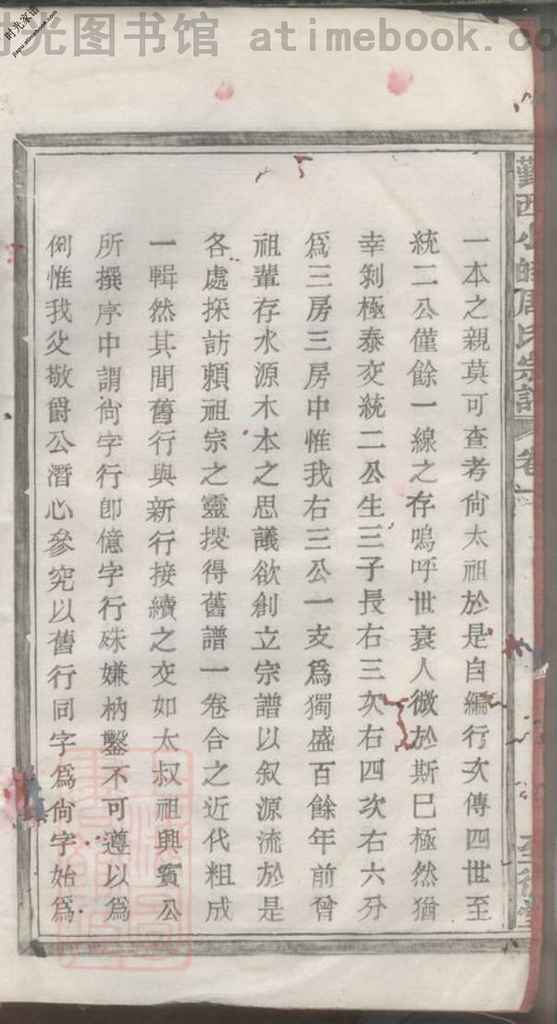 时光图书馆 atimebook.com
时光家谱
一本之親莫可查考尙太祖於是自編行次傳四世至
統二公僅餘一線之存嗚呼世衰人微於斯巳極然猶
幸剝極泰交統二公生三子長右三次右四次右六分
爲三房三房中惟我右三公一支爲獨盛百餘年前曾
祖輩存水源木本之思議欲創立宗譜以叙源流於是
各處採訪賴祖宗之靈搜得舊譜一卷合之近代粗成
一輯然其間舊行與新行接續之交如太叔祖興賓公
所撰序中謂尙字行卽億字行殊嫌枘鑿不可遵以爲
例惟我父敬爵公潛心參究以舊行同字爲尙字始爲